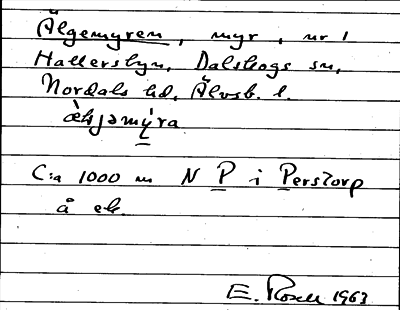 Älgemyren, myr, nr 1
Hallerebyn, Dalskogs sn,
Nordals hd, Älvsb. l.
C:a 1000 m N P i Perstorp
å ek.
E. Rosell 1963